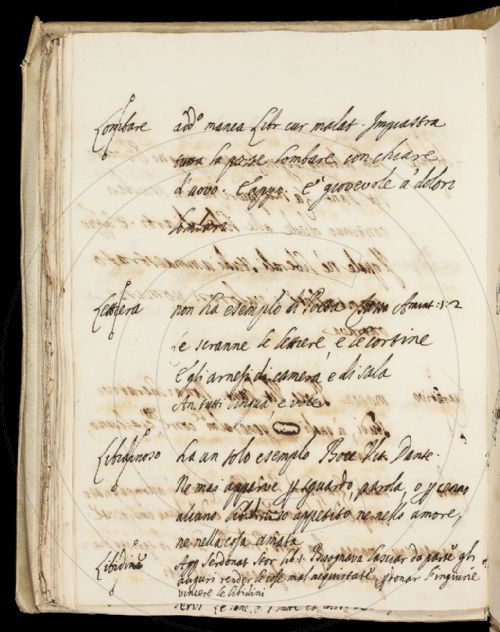 Lombare add.o manca Libr cur malat. Impiastra
tutta la parte lombare con chiare
d'uovo. E appr. è giovevole a' dolori
lombari
Lettiera non ha esempio di Poeta Amint. 1. 2
Le scranne le lettiere, e le cortine
E gli arnesi di camera, e di sala
An tutti lingua, e voce
Libidinoso ha un solo esempio Bocc. Vit. Dante.
Ne mai apparve per sguardo, parola, o per cenno
alcuno libidinoso appetito ne nello amore,
ne nella cosa amata
Libidine Agg. Serdonat. Stor. lib. 1 Bisognava lasciar da parte gli
auguri render le cose mal acquistate, perdonar l'ingiurie
vincere le libidini